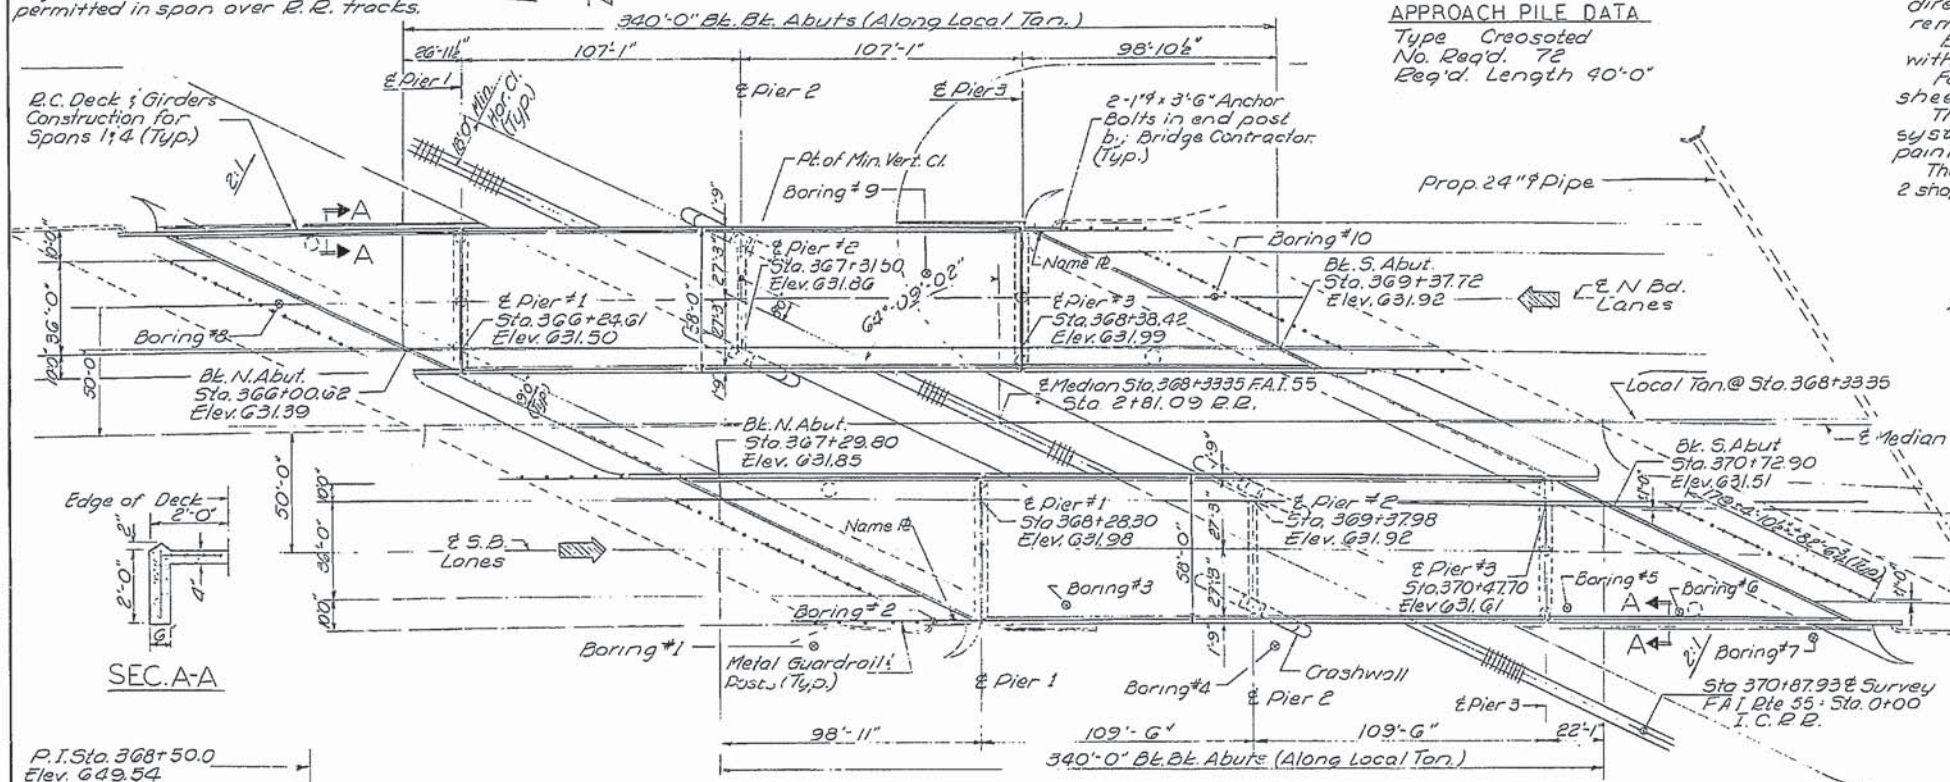 permitted in span over R.R. tracks.
340'-0" Bk. Bk. Abuts (Along Local Tan.)
26'-11½"
107'-1"
107'-1"
98'-10½"
APPROACH PILE DATA
Type Creosoted
No. Req'd. 72
Req'd. Length 40'-0"
℄ Pier 1
℄ Pier 2
℄ Pier 3
R.C. Deck & Girders
Construction for
Spans 1&4 (Typ.)
18'0" Min.
Hor. Cl.
(Typ.)
2-1"φ x 3'-6" Anchor
Bolts in end post
by Bridge Contractor.
(Typ.)
Pt. of Min. Vert. Cl.
Boring #9
Prop. 24"φ Pipe
2:1
A
A
Boring #10
Name ℞
℄ Pier #2
Sta. 367+31.50
Elev. 631.86
64°-09'-02"
Bk. S. Abut.
Sta. 369+37.72
Elev. 631.92
℄ N Bd.
Lanes
℄ Pier #1
Sta. 366+24.61
Elev. 631.50
℄ Pier #3
Sta. 368+38.42
Elev. 631.99
10'-0"
36'-0"
10'0"
50'-0
1'-9"
27'-3"
27'-3"
1'-9"
58'-0"
Boring #8
Bk. N. Abut.
Sta. 366+00.62
Elev. 631.39
℄ Median Sta. 368+33.35 F.A.I. 55
Sta 2+81.09 R.R.
Local Tan. @ Sta. 368+33.35
℄ Median
Bk. N. Abut.
Sta. 367+29.80
Elev. 631.85
Bk. S. Abut
Sta. 370+72.90
Elev. 631.51
17@4'-10½"=82'-6¾" (Typ)
Edge of Deck
2'-0"
2"
2'-0"
4"
6
SEC. A-A
50'-0"
10'0"
36'-0"
10'0"
℄ S.B.
Lanes
Name ℞
℄ Pier #1
Sta 368+28.30
Elev. 631.98
℄ Pier #2
Sta. 369+37.98
Elev. 631.92
℄ Pier #3
Sta. 370+47.70
Elev 631.61
1'-9"
27'-3"
27'-3"
1'-9"
58'-0"
Boring #3
Boring #5
Boring #6
Boring #2
Boring #1
A
A
2:1
Boring #7
Metal Guardrail &
Posts (Typ.)
℄ Pier 1
Boring #4
℄ Pier 2
Crashwall
℄ Pier 3
Sta 370+87.93 ℄ Survey
FAI Rte 55 = Sta. 0+00
I.C.R.R.
98'-11"
109'-6"
109'-6"
22'-1"
340'-0" Bk. Bk. Abuts (Along Local Tan.)
P.I. Sta. 368+50.0
Elev. 649.54